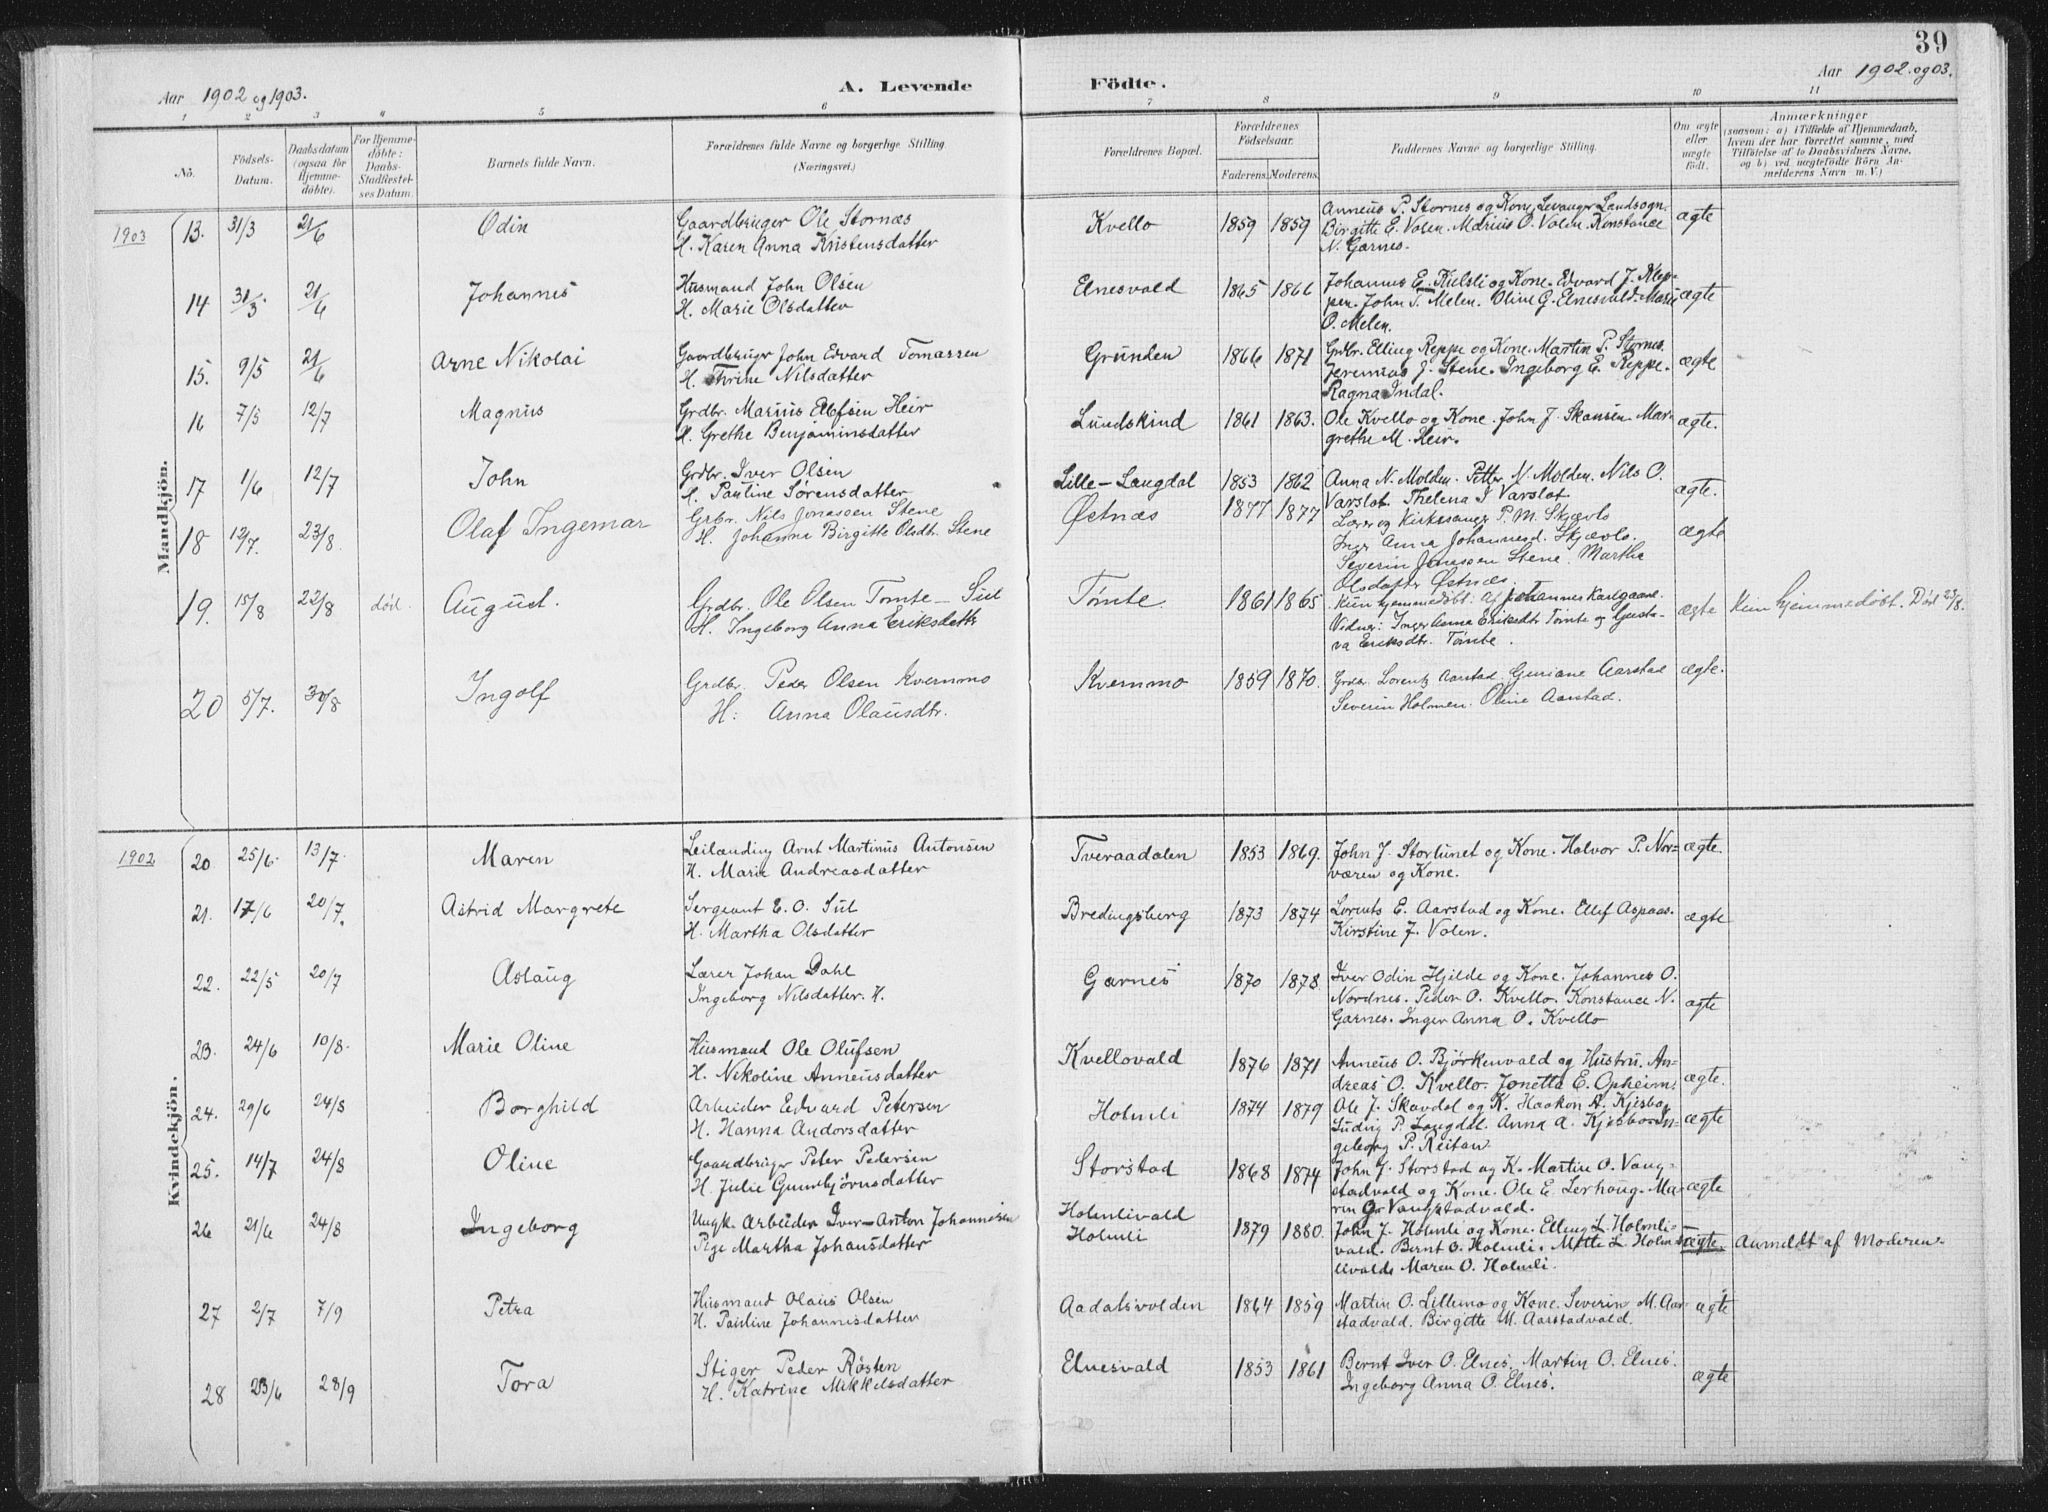 39
Aar 1902 og 1903.
A. Levende
Födte.
Aar 1902 og 03.
1 2 3 4 5 6 7 8 9 10 11
No.
Födsels-
Datum.
Daabsdatum
(ogsaa for
Hjemme-
döbte).
For Hjemme-
döbte:
Daabs-
Stadfæstel-
ses Datum.
Barnets fulde Navn.
Forældrenes fulde Navne og borgerlige Stilling
(Næringsvei.)
Forældrenes Bopæl.
Forældrenes
Födselsaar.
Faderens. Moderens.
Faddernes Navne og borgerlige Stilling.
Om ægte
eller
uægte
födt.
Anmærkninger
(saasom: a) i Tilfælde af Hjemmedaab,
hvem der har forrettet samme, med
Tilföielse af to Daabsvidners Navne,
og b) ved uægtefödte Börn An-
melderens Navn m. V.)
Mandkjön.
1903
13. 31/3 21/6 Odin
Gaardbruger Ole Stornæs
H. Karen Anna Kristensdatter
Kvello 1859 1859
Anneus P. Stornes og Kone, Levanger Landsogn.
Birgitte E. Volen. Marius O. Volen. Konstance
N. Garnes.
ægte
14 31/3 21/6 Johannes
Husmand John Olsen
H. Marie Olsdatter
Elnesvald 1865 1866
Johannes E. Kulsli og Kone. Edvard J. Klep-
pen. John T. Melen. Oline G. Elnesvald. Marie
O. Melen.
ægte
15. 9/5 21/6 Arne Nikolai
Gaardbruger John Edvard Tomassen
H. Thrine Nilsdatter
Grunden 1866 1871
Grdbr. Elling Reppe og Kone. Martin P. Stornes.
Jeremias J. Stene. Ingeborg E. Reppe.
Ragna Indal.
ægte
16 7/5 12/7 Magnus
Grdbr. Marius Ellefsen Heir
H. Grethe Benjaminsdatter
Lundskind 1861 1863.
Ole Kvello og Kone. John J. Skansen. Mar-
grethe M. Heir.
ægte.
17 1/6 12/7 John
Grdbr. Iver Olsen
H. Pauline Sørensdatter
Lille-Langdal 1853 1862
Anna N. Molden. Petter N. Molden. Nils O.
Varslot. Thelena I Varslot.
ægte.
18 12/7. 23/8. Olaf Ingemar
Grbr. Nils Jonassen Stene
H. Johanna Birgitte Olsdt. Stene
Østnæs 1877 1877
Lærer og Kirkesanger P. M. Skjævlo
Inger Anna Johannesd. Skjævlo.
Severin Jonassen Stene. Martha
Olsdatter Østnæs.
ægte
19. 15/8 22/8 död. August.
Grdbr. Ole Olsen Tomte - Sul
H. Ingeborg Anna Eriksdattr
Tömte 1861 1865
Kun hjemmedöbt: Af Johannes Karlgaane.
Vidner: Inger Anna Eriksdtr Tömte og Gusta-
va Eriksdtr. Tömte.
ægte Kun hjemmedöbt. Död 23/8.
20 5/7. 30/8 Ingolf
Grdbr. Peder Olsen Kvernmo
H: Anna Olausdtr.
Kvernmo 1859 1870.
Grdbr. Lorents Aarstad. Guriane Aarstad
Severin Holmen. Oline Aarstad.
ægte.
Kvindekjön.
1902
20 25/6. 13/7. Maren
Leilænding Arnt Martinus Antonsen
H. Marie Andreasdatter
Tveraadalen 1853 1869.
John J. Storlunet og Kone. Halvor P. Nor-
væren og Kone.
ægte.
21. 17/6 20/7. Astrid Margrete
Sergeant E. O. Sul
H. Martha Olsdatter
Bredingsberg 1873 1874
Lorents E. Aarstad og Kone. Ellef Aspaas.
Kirstine J. Volen.
ægte
22. 22/5 20/7 Aslaug
Lærer Johan Dahl
Ingeborg Nilsdatter. H.
Garnes 1870 1878.
Iver Odin Hjilde og Kone. Johannes O.
Nordnes. Peder O. Kvello. Konstance N.
Garnes. Inger Anna O. Kvello
ægte
23. 24/6 10/8. Marie Oline
Husmand Ole Olufsen
H. Nikoline Anneusdatter
Kvellovald 1876 1871
Anneus O. Bjørkenvald og Hustru. An-
dreas O. Kvello. Jonetta E. Opheim.
ægte.
24. 29/6 24/8 Borghild
Arbeider Edvard Petersen
H. Hanna Andorsdatter
Holmli 1874 1879
Ole J. Skavdal og K. Haakon A. Kjesbo,
Ludvig P. Langdal. Anna A. Kjesbo. In-
geborg P. Reitan
ægte
25. 14/7 24/8 Oline
Gaardbruger Peter Pedersen
H. Julie Gunbjørnsdatter
Storstad 1868 1874
John J. Storstad og K. Martin O. Vang-
stadvald og Kone. Ole E. Lerhaug. Ma-
ren O. Vangstadvald.
ægte
26 21/6 24/8 Ingeborg
Ungk. Arbeider Iver-Anton Johannesen
Pige Martha Johansdatter
Holmlivald
Holmli
1879 1880.
John J. Holmli og Kone. Elling L. Holmli-
vald. Bernt O. Holmli. Mette L. Holm-
livald. Maren O. Holmli.
uægte. Anmeldt af Moderen.
27 2/7 7/9 Petra
Husmand Olaus Olsen
H. Pauline Johannisdatter
Aadalsvolden 1864 1859
Martin O. Lillemo og Kone. Severin M. Aar-
stadvald. Birgitte M. Aarstadvald.
ægte
28 23/6 28/9 Tora
Stiger Peder Røsten
H. Katrine Mikkelsdatter
Elnesvald 1853 1861
Bernt Iver O. Elnes. Martin O. Elnes.
Ingeborg Anna O. Elnes.
ægte